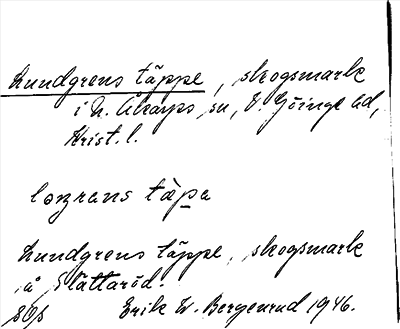 Lundgrens täppe, skogsmark
i N. Åkarps sn, V. Göinge hd,
Krist. l.
täpa
Lundgrens täppe, skogsmark
å Slättaröd.
Erik W. Bergenrud 1946.